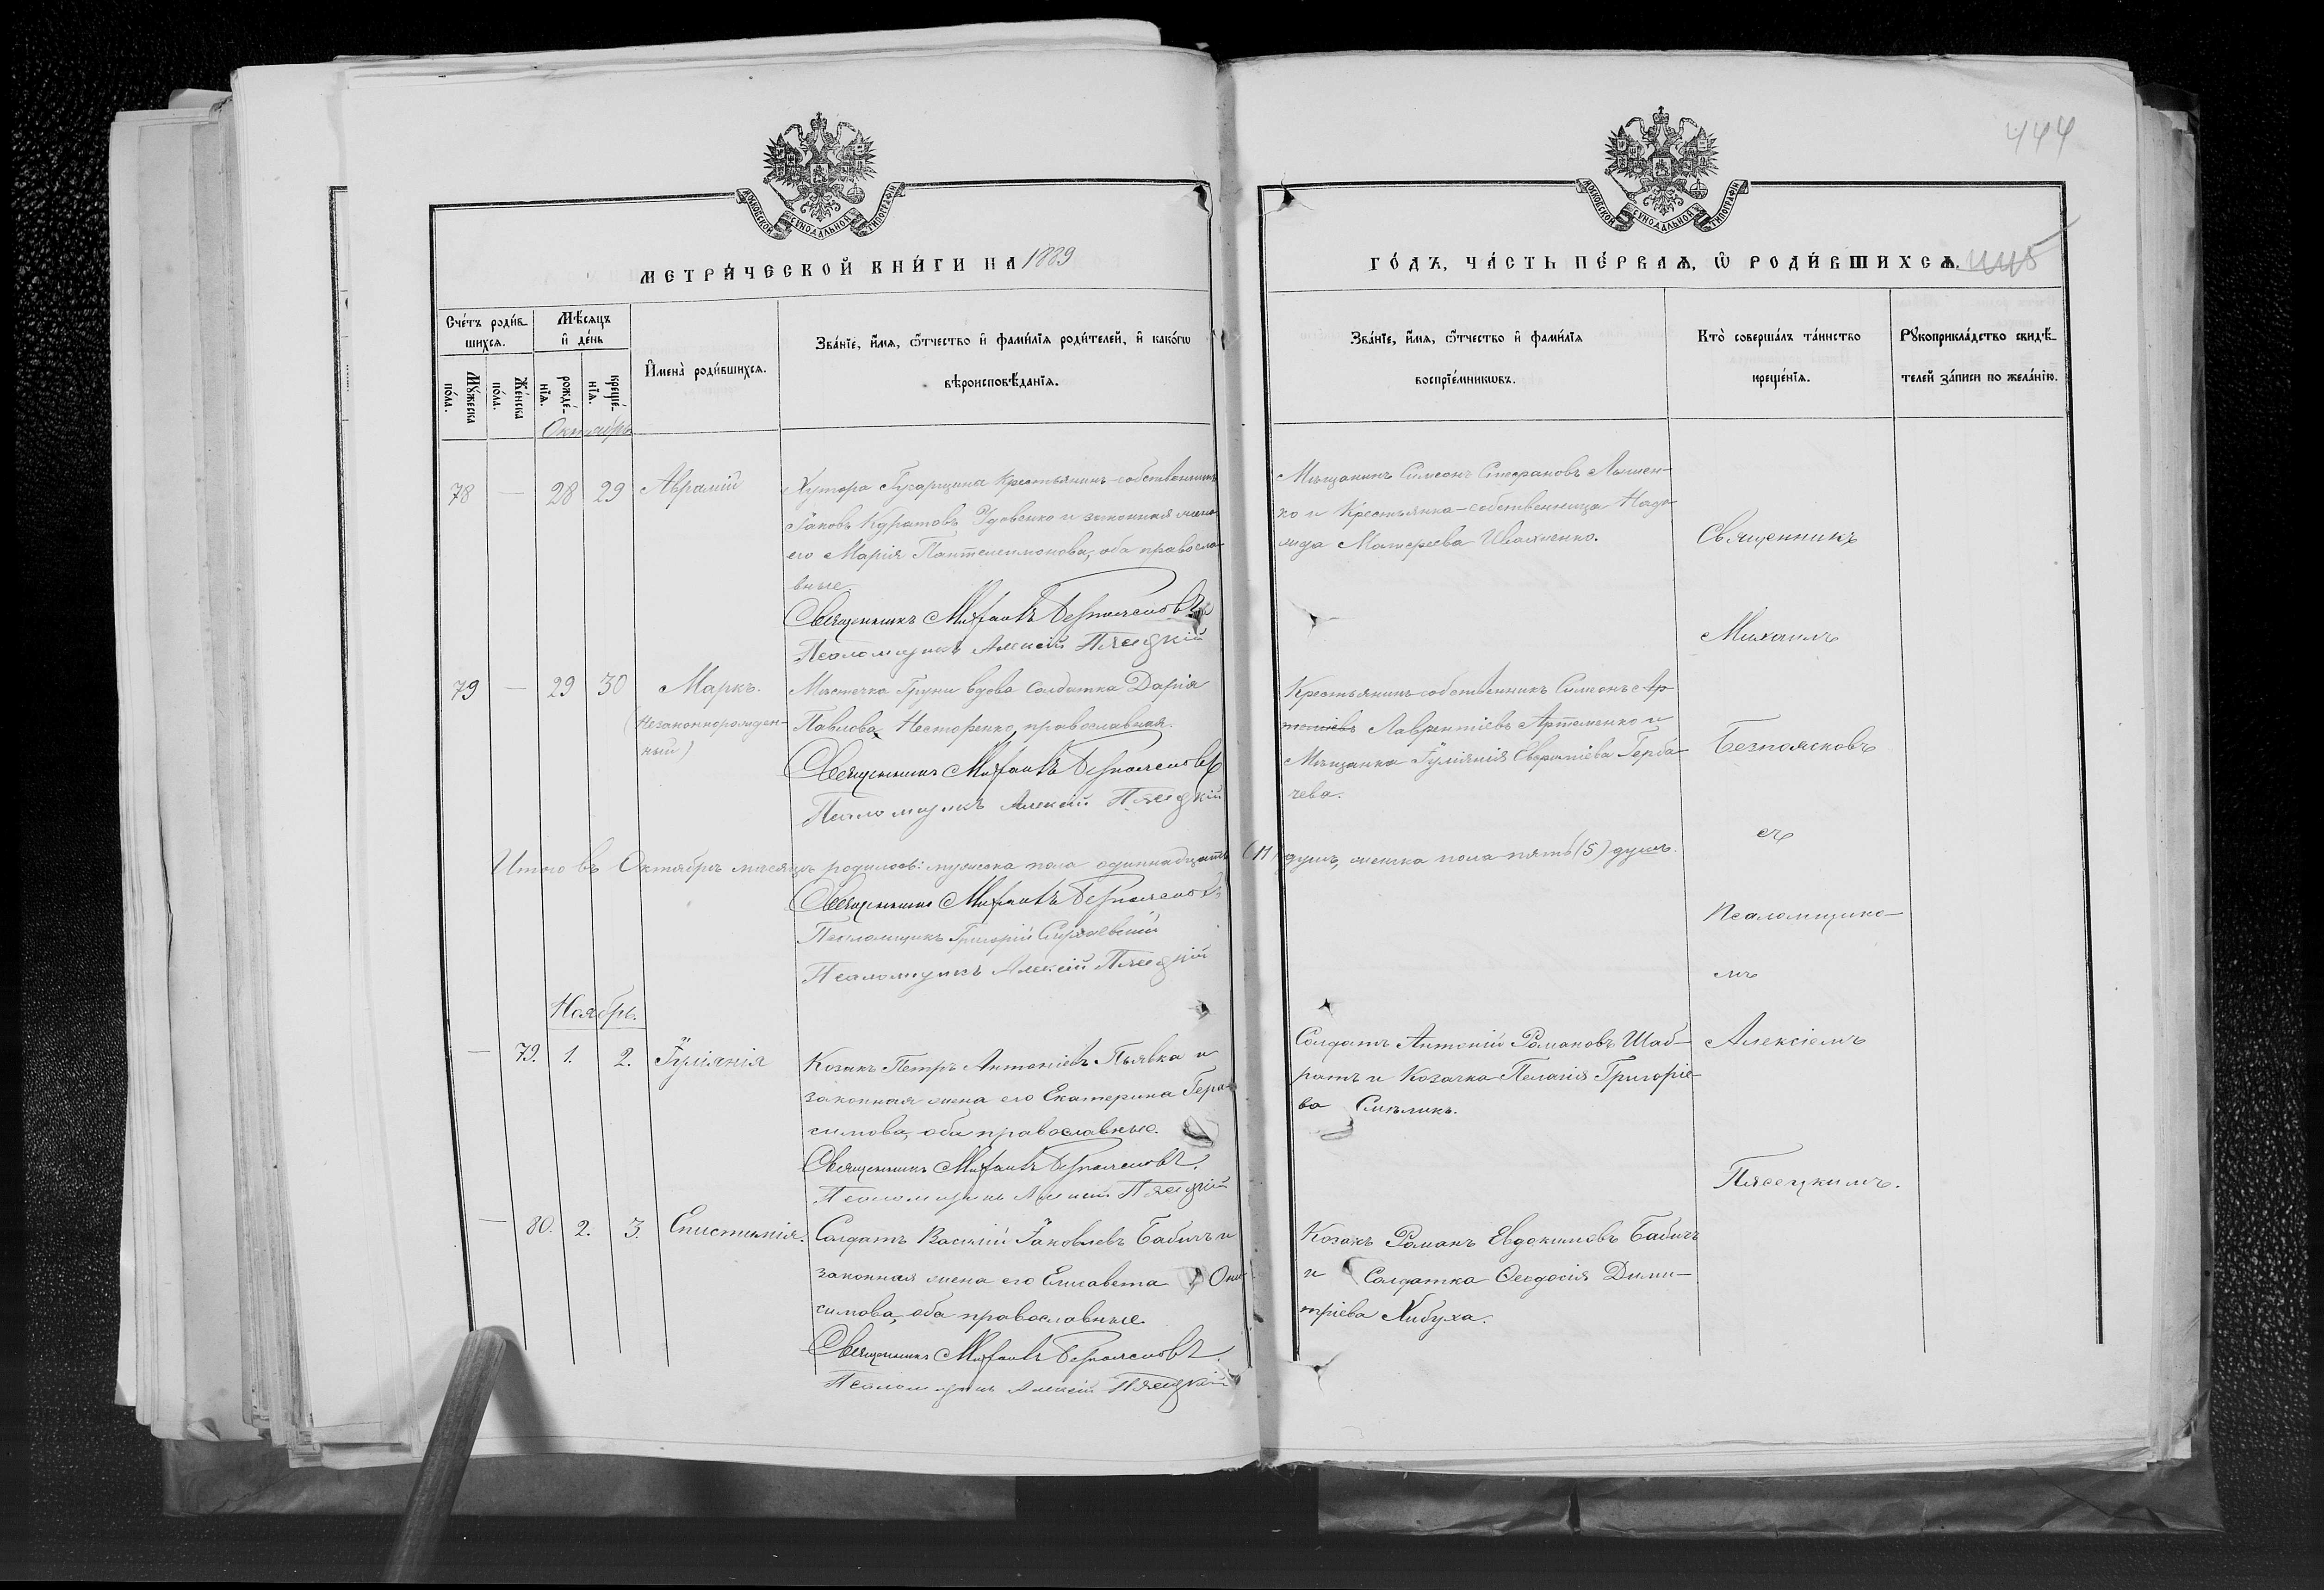 444
МОСКОВСКОЙ СѴНОДАЛЬНОЙ ТИПОГРАФІИ
МОСКОВСКОЙ СѴНОДАЛЬНОЙ ТИПОГРАФІИ
МЕТРИ́ЧЕСКОЙ КНИ́ГИ НА 1889
ГО́ДЪ, ЧА́СТЬ ПЕ́РВАѦ, Ѽ РОДИ́ВШИХСѦ. 445
Сче́тъ роди́в-
шихсѧ.
Мꙋ́жеска по́ла.
Же́нска по́ла.
Мѣ́сѧцъ
и҆ де́нь
рожде́-
нїѧ.
креще́-
нїѧ.
И҆мена̀ роди́вшихсѧ.
Зва́нїе, и҆́мѧ, ѻ҆́тчество и҆ фами́лїѧ роди́телей, и҆ како́гѡ
вѣроисповѣ́данїѧ.
Зва́нїе, и҆́мѧ, ѻ҆́тчество и҆ фами́лїѧ
воспрїе́мникѡвъ.
Кто̀ соверша́лъ та́инство
креще́нїѧ.
Рꙋкоприкла́дство свидѣ́-
телей за́писи по жела́нїю.
Октябрь
78 — 28 29 Аврамій
Хутора Гусарщина крестьянинъ-собственникъ
Іаковъ Удовенко и законная жена
его Марія Пантелеимонова, оба правосла-
вные
Священникъ Михаилъ Безпоясковъ
Псаломщикъ Алексій Пясецкій
Мѣщанинъ Симеонъ Стефановъ
ко и Крестьянка-собственница
Матфеева Ивахненко.
Священникъ
Михаилъ
79 — 29 30 Маркъ.
(Незаконнорожден-
ный)
Мѣстечка Груни вдова солдатка Дарія
Павлова Несторенко, православная.
Священникъ Михаилъ Безпоясковъ
Псаломщикъ Алексій Пясецкій
Крестьянинъ-собственникъ Симеонъ Ар-
Лаврентіевъ Артеменко и
Мѣщанка Іуліанія Горба-
чева.
Безпоясковъ
съ
Итого въ Октябрѣ мѣсяцѣ родилось: мужеска пола одиннадцать (11) душъ, женска пола пять (5) душъ.
Священникъ Михаилъ Безпоясковъ
Псаломщикъ Григорій
Псаломщикъ Алексій Пясецкій
Псаломщико-
мъ
Ноябрь.
— 79. 1. 2. Іуліанія
Козакъ Петръ Антоніевъ Пьявка и
законная жена его Екатерина Гера-
симова, оба православные.
Священникъ Михаилъ Безпоясковъ.
Псаломщикъ Алексій Пясецкій
Солдатъ Антоній Романовъ Шаб-
ратъ и Козачка Пелагія Григоріе-
ва Смѣликъ.
Алексіемъ
Пясецкимъ.
— 80. 2. 3. Епистимія.
Солдатъ Василій Іаковлевъ Бабичъ и
законная жена его Елисавета Они-
симова, оба православные.
Священникъ Михаилъ Безпоясковъ.
Псаломщикъ Алексій Пясецкій
Козакъ Романъ Евдокимовъ Бабичъ
и Солдатка Ѳеодосія Дими-
тріева Хибуха.